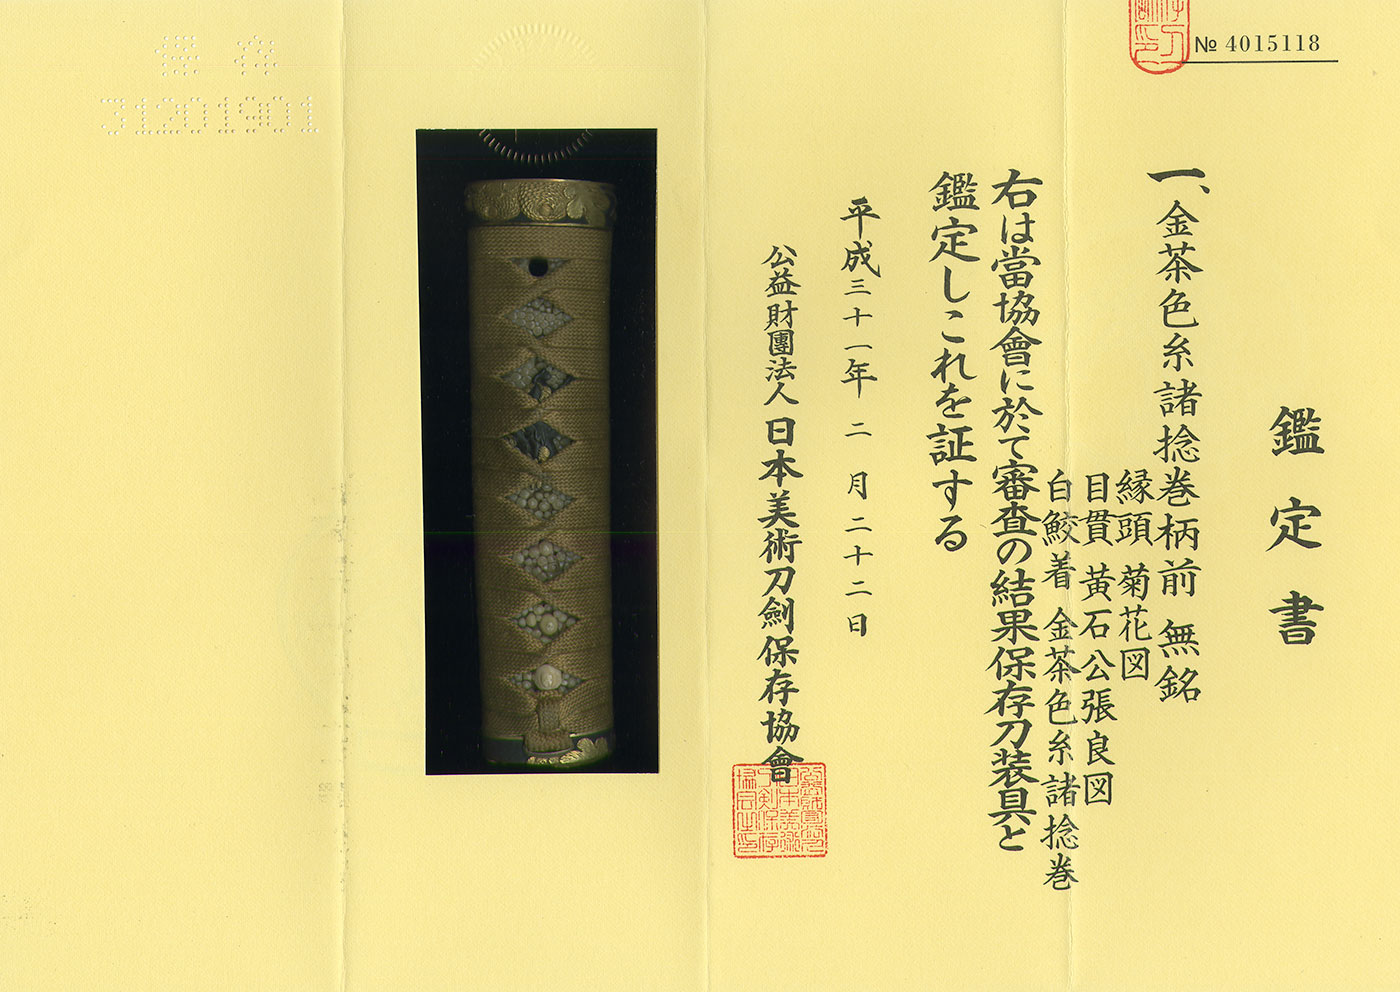 № 4015118
鑑定書
一、金茶色糸諸捻巻柄前 無銘
縁頭 菊花図
目貫 黄石公張良図
白鮫着 金茶色糸諸捻巻
右は當協會に於て審査の結果保存刀装具と
鑑定しこれを証する
平成三十一年 二 月 二十二日
公益財團法人 日本美術刀劍保存協會
保存
31201901